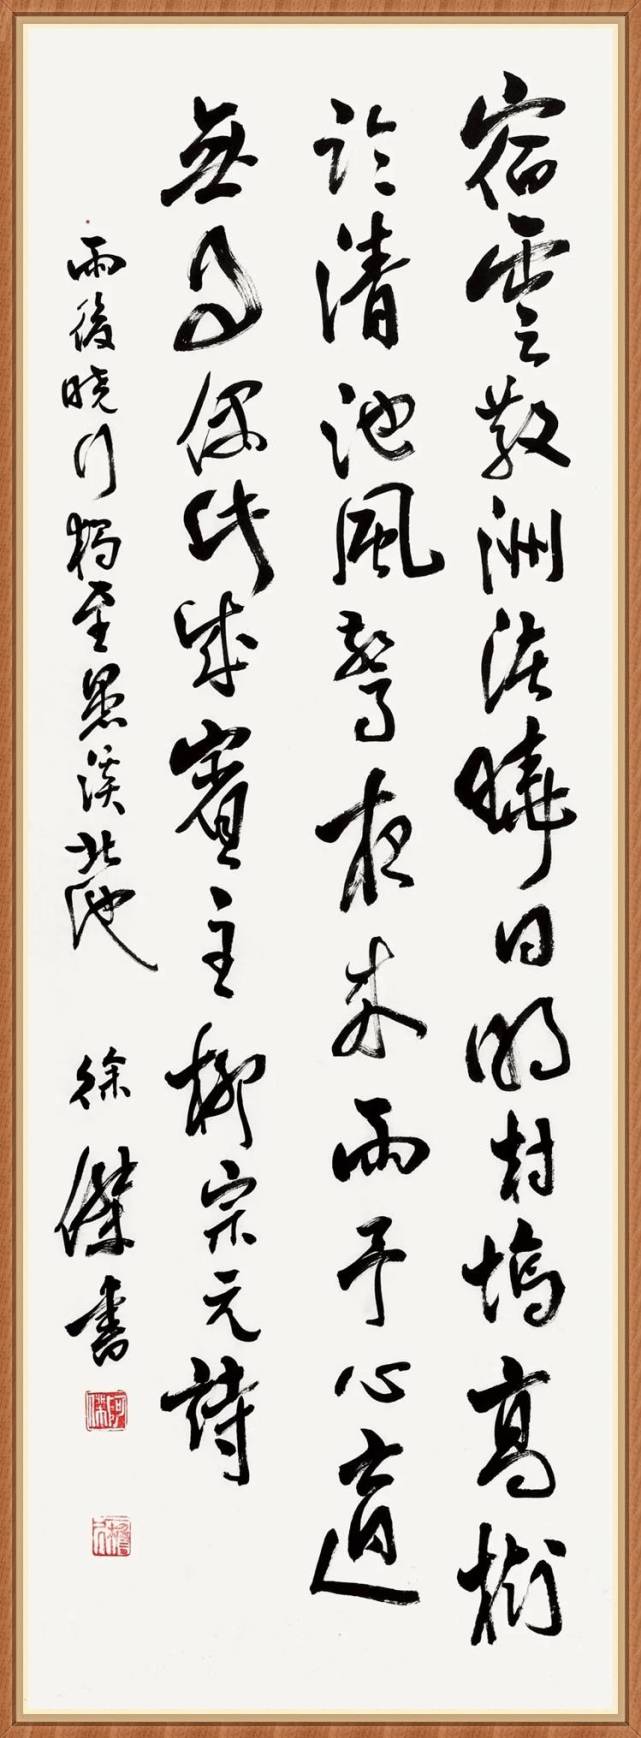 宿雲散洲渚曉日明村塢高樹
臨清池風驚夜來雨予心適
無事偶此成賓主柳宗元詩
雨後曉行獨至愚溪北池 徐傑書